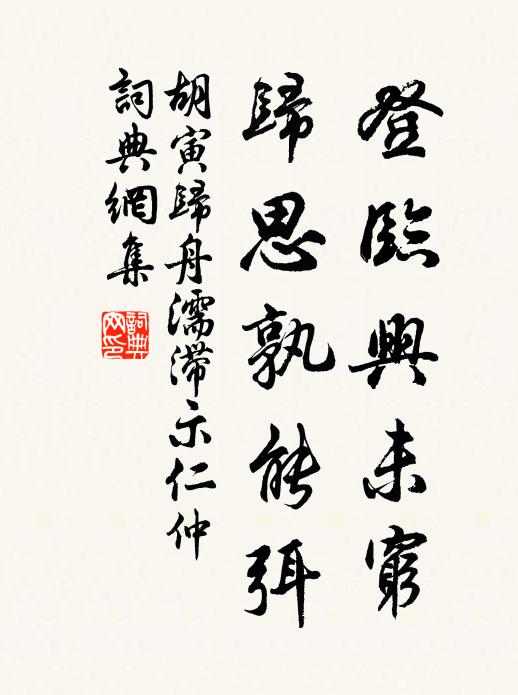 登臨興未窮
歸思孰能弭
胡寅歸舟濡滯示仁仲
詞典網集
詞典網印